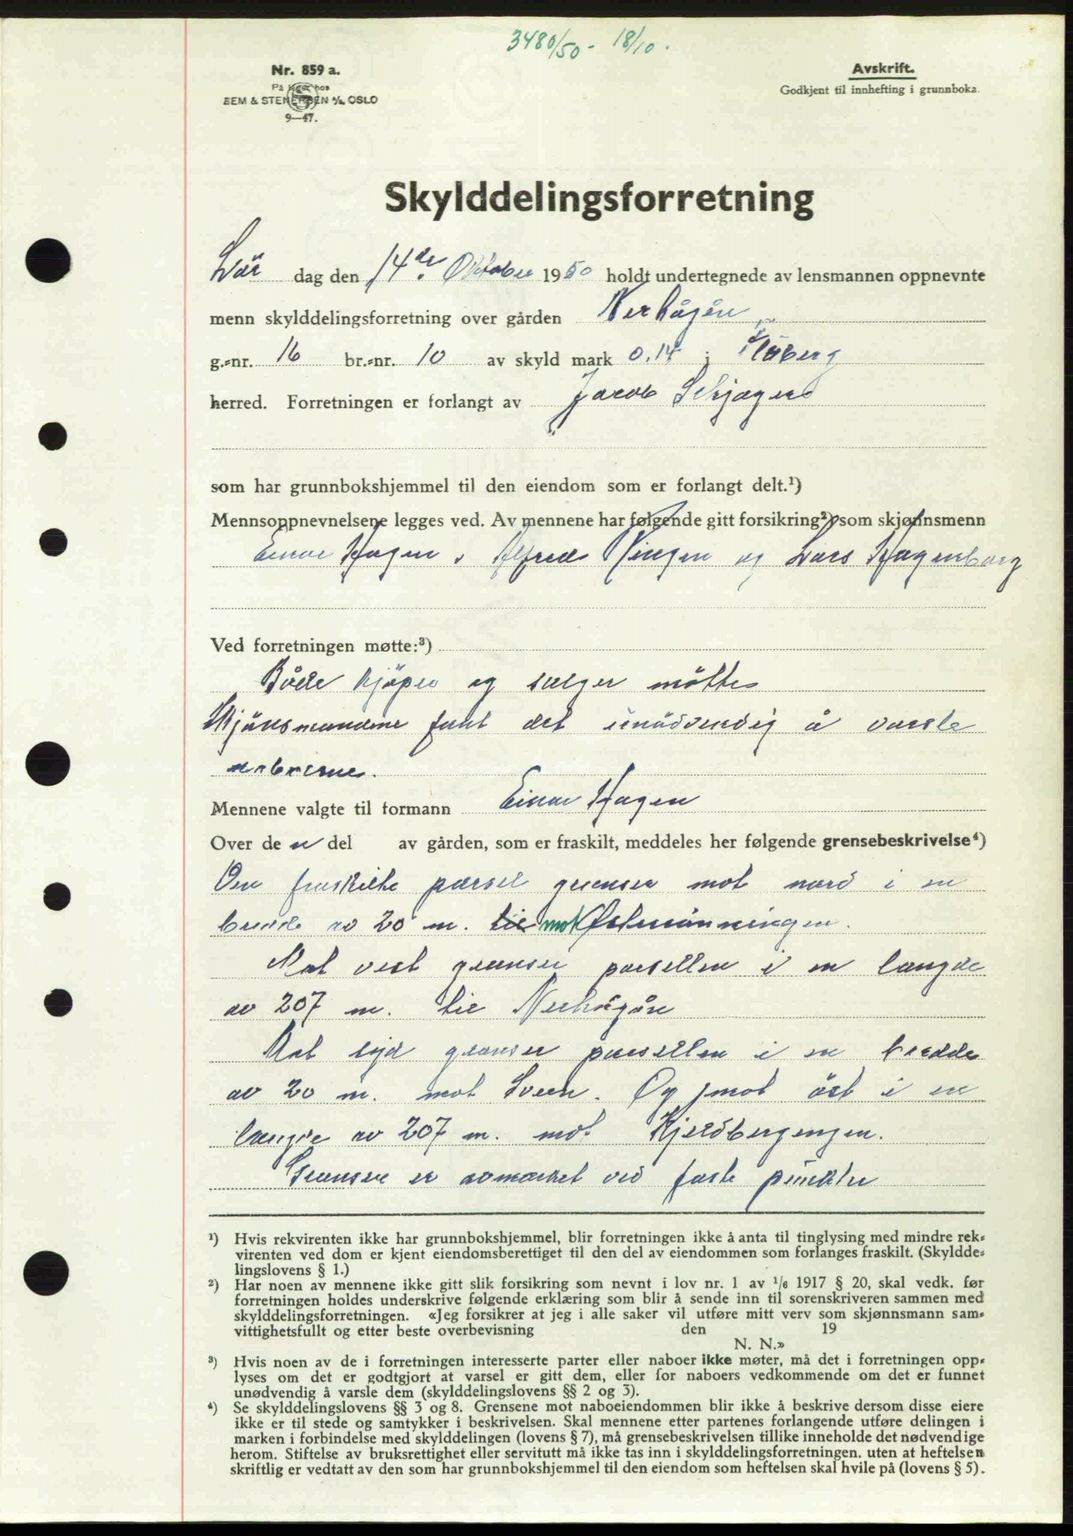 3480/50 - 18/10.
Nr. 859 a.
På lager hos
SEM & STENERSEN A/S, OSLO
9—47.
Avskrift.
Godkjent til innhefting i grunnboka.
Skylddelingsforretning
Lör dag den 14de Oktober 1950 holdt undertegnede av lensmannen oppnevnte
menn skylddelingsforretning over gården Nerhågån
g.-nr. 16 br.-nr. 10 av skyld mark 0.14 i Fåberg
herred. Forretningen er forlangt av Jacob
som har grunnbokshjemmel til den eiendom som er forlangt delt.¹)
Mennsoppnevnelsene legges ved. Av mennene har følgende gitt forsikring²) som skjønnsmenn
Einar Hagen, Alfred og Lars Hagenborg
Ved forretningen møtte:³)
Både kjöper og selger mötte
Skjönsmendene fant det unödvendig å varsle
naboerne.
Mennene valgte til formann Einar Hagen
Over de n del av gården, som er fraskilt, meddeles her følgende grensebeskrivelse⁴)
Den fraskilte parsel grenser mot nord i en
bredde av 20 m. til mot
Mot vest grenser parsellen i en lengde
av 207 m. til Nerhågån
Mot syd grenser parsellen i en bredde
av 20 m. mot Sveen. Og mot öst i en
lengde av 207 m. mot Kjeldbergengen.
Grensen er avmerket ved faste punkter
¹) Hvis rekvirenten ikke har grunnbokshjemmel, blir forretningen ikke å anta til tinglysing med mindre rek-
virenten ved dom er kjent eiendomsberettiget til den del av eiendommen som forlanges fraskilt. (Skyldde-
lingslovens § 1.)
²) Har noen av mennene ikke gitt slik forsikring som nevnt i lov nr. 1 av 1/6 1917 § 20, skal vedk. før
forretningen holdes underskrive følgende erklæring som blir å sende inn til sorenskriveren sammen med
skylddelingsforretningen. «Jeg forsikrer at jeg i alle saker vil utføre mitt verv som skjønnsmann sam-
vittighetsfullt og etter beste overbevisning den 19
N. N.»
³) Hvis noen av de i forretningen interesserte parter eller naboer ikke møter, må det i forretningen opp-
lyses om det er godtgjort at varsel er gitt dem, eller for naboers vedkommende om det er funnet
unødvendig å varsle dem (skylddelingslovens §§ 2 og 3).
⁴) Se skylddelingslovens §§ 3 og 8. Grensene mot naboeiendommen blir ikke å beskrive dersom disse eiere
ikke er til stede og samtykker i beskrivelsen. Skal mennene etter partenes forlangende utføre delingen i
marken i forbindelse med skylddelingen (lovens § 7), må grensebeskrivelsen tillike inneholde det nødvendige
herom. Stiftelse av bruksrettighet eller servitutt må ikke tas inn i skylddelingsforretningen, uten at heftelsen
skriftlig er vedtatt av den som har grunnbokshjemmel til den eiendom som heftelsen skal hvile på (lovens § 5).